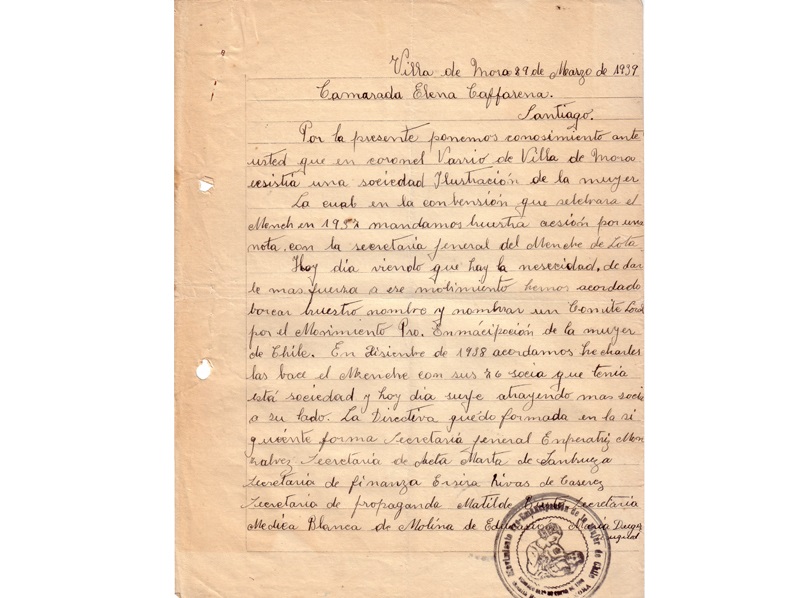 Villa de Mora 29 de Marzo de 1939
Camarada Elena Caffarena.
Santiago.
Por la presente ponemos conosimiento ante
usted que en coronel Varrio de Villa de Mora
ecsistia una sociedad Ilustración de la mujer
La cual en la conbensión que selebrara el
Mench en 1937 mandamos nuestra acsión por una
nota, con la secretaria jeneral del Menche de Lota.
Hoy dia viendo que hay la nesecidad, de dar
le mas fuerza a ese motimiento hemos acordado
borear nuestro nombro y nombrar un Comito Local
por el Movimiento Pro. Enmácipoción de la mujer
de Chile. En Disienbre de 1938 acordamos hecharles
las bace el Menche con sus 26 socia que tenia
está sociedad y hoy dia surje atrayendo mas socia
a su lado. La Directiva quedo formada en la si
guiente forma Secretaria jeneral Enperatriz Mon
salvez Secretaria de Acta Marta de Sanbueza
Secretaria de finanza Ersira Rivas de Caserez
Secretaria de propaganda Matilde secretaria
Medica Blanca de Molina de Educasion Maria
Movimiento Pro-Emancipación de la Mujer de Chile